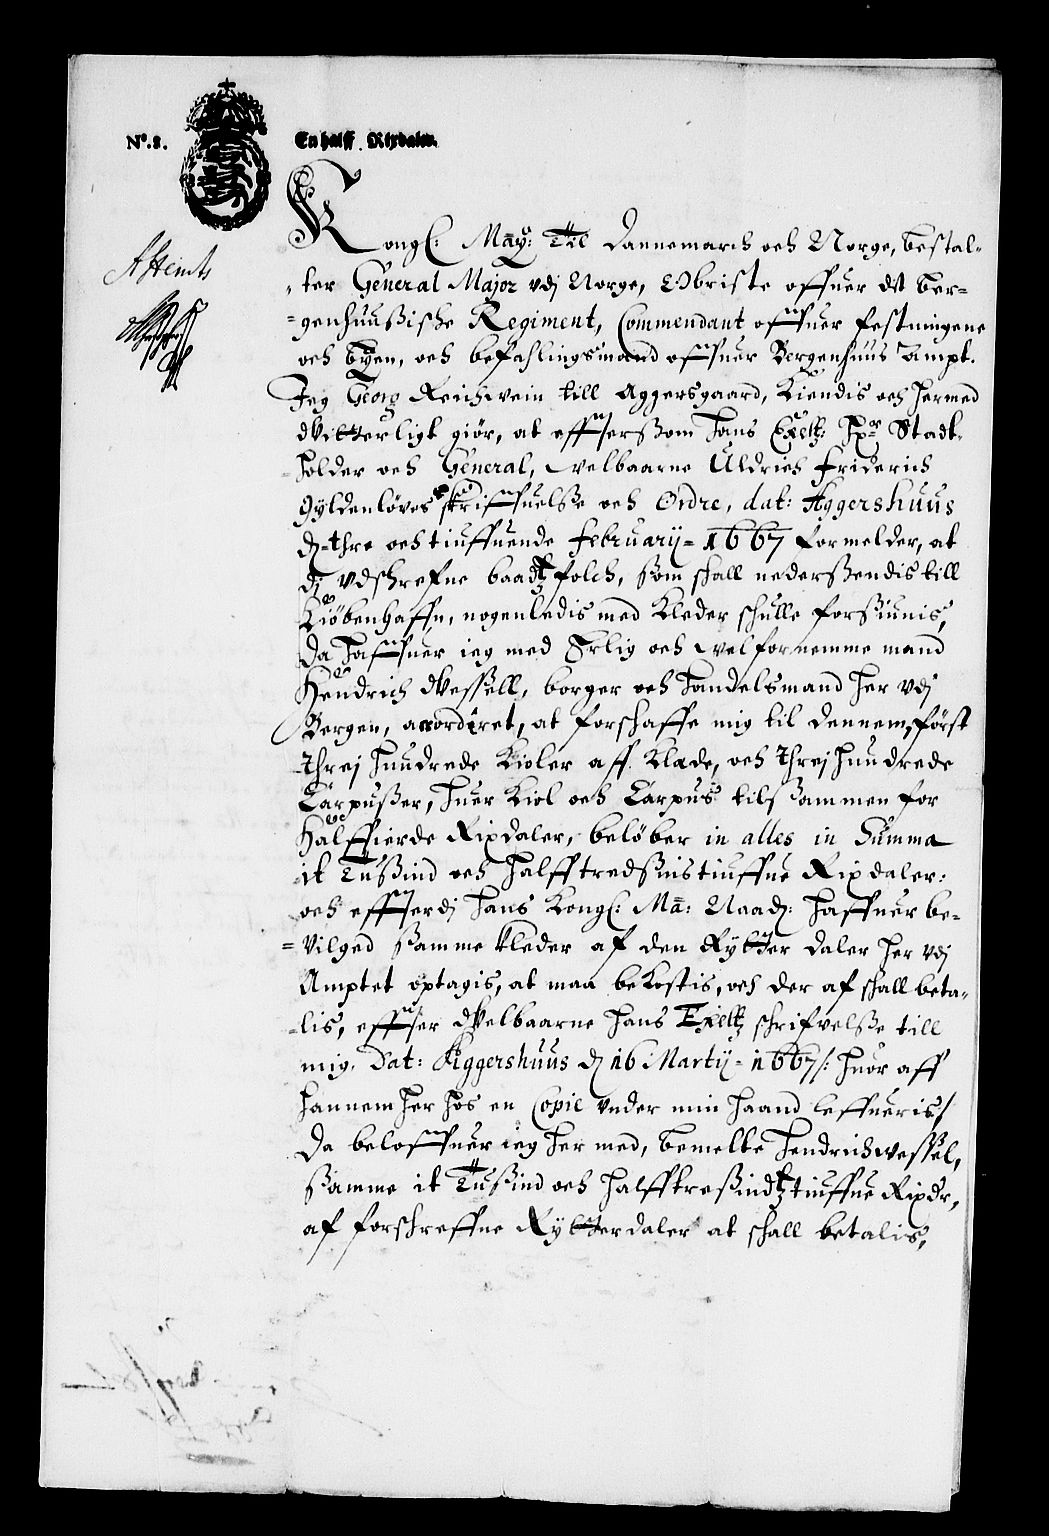 No. 8. En halff Rixdaler.
Kongl: May: Til Dannemarch och Norge, bestal-
ter General Major vdj Norge, Obriste offuer det Ber-
genhuusische Regiment, Commendant offuer festningene
och byen, och befahlingsmand offuer Bergenhuus Ampt.
Jeg Georg Reichwein till Aggersgaard, Kiendis och hermed
vitterligt giør, at effttersom hans Excell: Hr Stadt-
holder och General, velbaarne Uldrich Friderich
Gyldenløves skriffuelsse och Ordre, dat: Aggershuus
d. thre och tiuffuende February 1667 formelder, at
dj vdschrefne baadtzfolch, som skall nedersendis till
Kiöbenhaffn, nogenledis med Kleder schulle forsiunis,
Da haffuer ieg med Erlig och velfornemme mand
Hendrich Wessell, borger och handelsmand her vdj
Bergen, accorderet, at forschaffe mig til dennem, först
threj hundrede Kioler aff Klæde, och threj hundrede
Carpusser, huer Kiol och Carpus tilsammen for
halffierde Rixdaler, belöber in alles in Summa
it Tusind och halfftredsinstiuffue Rixdaler:
och effterdj hans Kongl: Ma: Naad: haffuer be-
vilged samme kleder af den Rytter daler her vdj
Amptet optagis, at maa bekostis, och der af skall beta-
lis, effter Welbaarne hans Excell: schrifvelsse till
mig, Dat: Aggershuus d 16 Martij 1667 /: huor aff
hannem her hos en Copie vnder min haand leffueris/
Da beloffuer ieg her med, bemelte Hendrich Wessel,
samme it Tusind och halfftresindtztiuffue Rixdr,
af forschreffne Rytterdaler at skall betalis,